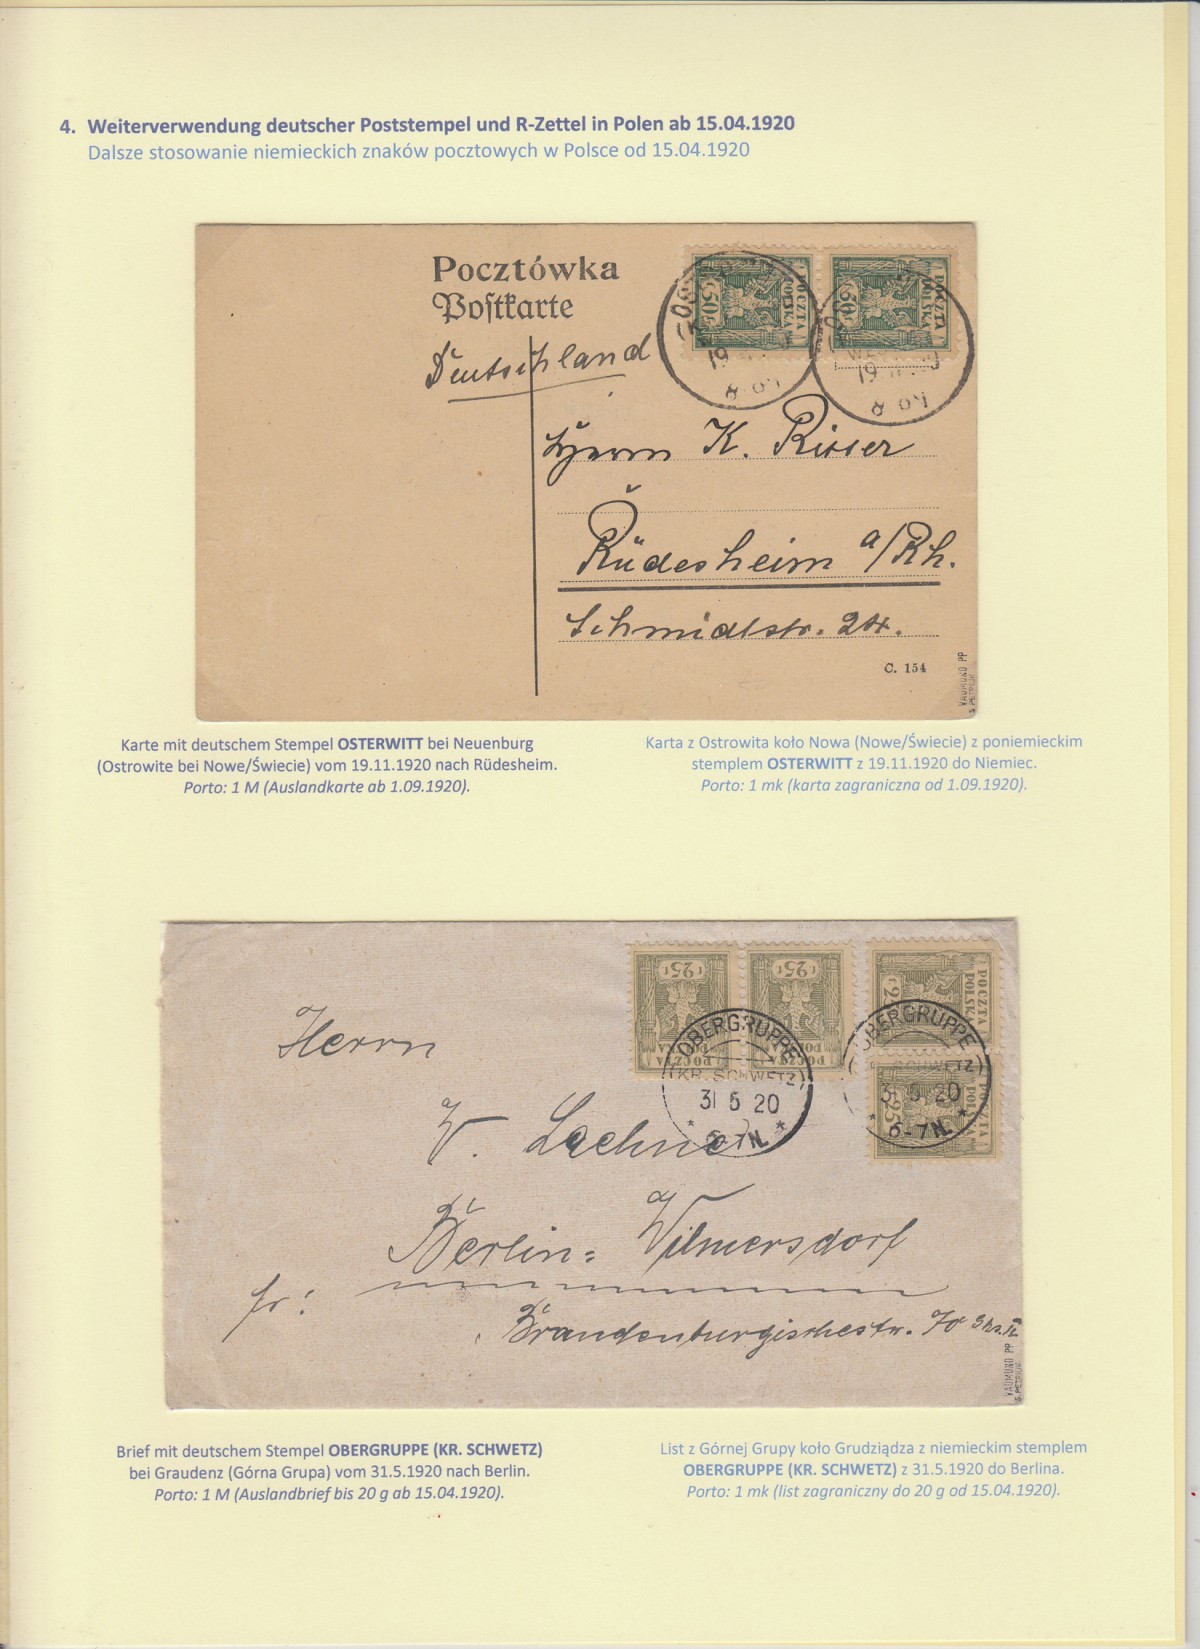 4. Weiterverwendung deutscher Poststempel und R-Zettel in Polen ab 15.04.1920
Dalsze stosowanie niemieckich znaków pocztowych w Polsce od 15.04.1920
Pocztówka
Postkarte
Deutschland
50 f
POCZTA
POLSKA
50 f
POCZTA
POLSKA
19
19
Herrn K. Risser
Rüdesheim a/Rh.
Schmidtstr. 24.
C. 154
VAUMUND PP
S. PETRIUK
Karte mit deutschem Stempel OSTERWITT bei Neuenburg
(Ostrowite bei Nowe/Świecie) vom 19.11.1920 nach Rüdesheim.
Porto: 1 M (Auslandkarte ab 1.09.1920).
Karta z Ostrowita koło Nowa (Nowe/Świecie) z poniemieckim
stemplem OSTERWITT z 19.11.1920 do Niemiec.
Porto: 1 mk (karta zagraniczna od 1.09.1920).
f 25 f
f 25 f
POCZTA
POCZTA
POCZTA
POLSKA
25
POCZTA
POLSKA
25
OBERGRUPPE
(KR. SCHWETZ)
31 5 20
* 6-7N. *
OBERGRUPPE
SCHWETZ)
31 5 20
* 6-7N. *
Herrn
W. Lachner
Berlin= Wilmersdorf
fr:
Brandenburgischestr. 70
VAUMUND PP
S. PETRIUK
Brief mit deutschem Stempel OBERGRUPPE (KR. SCHWETZ)
bei Graudenz (Górna Grupa) vom 31.5.1920 nach Berlin.
Porto: 1 M (Auslandbrief bis 20 g ab 15.04.1920).
List z Górnej Grupy koło Grudziądza z niemieckim stemplem
OBERGRUPPE (KR. SCHWETZ) z 31.5.1920 do Berlina.
Porto: 1 mk (list zagraniczny do 20 g od 15.04.1920).